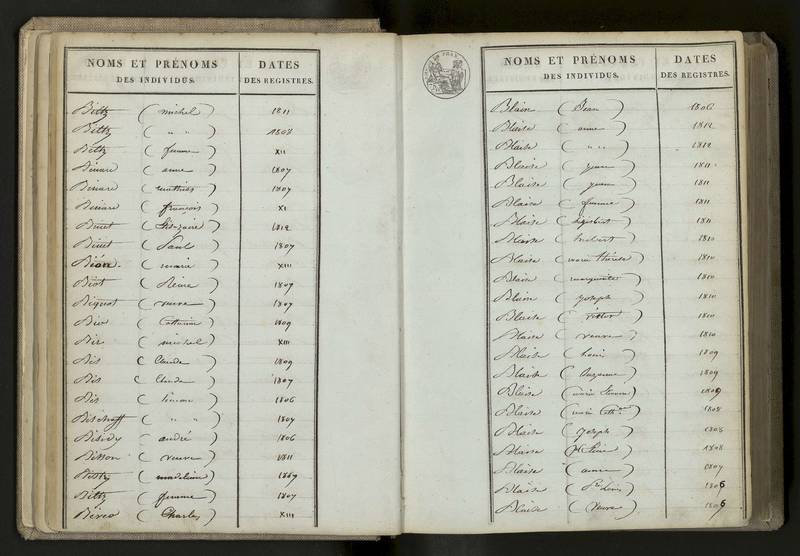 NOMS ET PRÉNOMS DATES
DES INDIVIDUS. DES REGISTRES.
Biltz ( michel ) 1811
Biltz ( " " ) 1808
Biltz ( femme ) XII
Binard ( anne ) 1807
Binard ( mathias ) 1807
Binard ( françois ) XI
Binet ( ) 1812
Binet ( Paul ) 1807
Bion ( marie ) XIII
Biot ( ) 1809
Bignot ( veuve ) 1807
( Catherine ) 1809
( michel ) XIII
Bis ( Claude ) 1809
Bis ( Claude ) 1807
Bis ( ) 1806
Bischoff ( " " ) 1807
( andré ) 1806
Bisson ( veuve ) 1811
( madeleine ) 1809
Biltz ( femme ) 1807
( Charles ) XIII
NOMS ET PRÉNOMS DATES
DES INDIVIDUS. DES REGISTRES.
Blain ( Jean ) 1806
Blaise ( anne ) 1812
Blaise ( " " ) 1812
Blaise ( ) 1811
Blaise ( ) 1811
Blaise ( femme ) 1811
Blaise ( ) 1811
Blaise ( hubert ) 1810
Blaise ( marie thérèse ) 1810
Blaise ( marguerite ) 1810
Blaise ( joseph ) 1810
Blaise ( victor ) 1810
Blaise ( veuve ) 1810
Blaise ( louis ) 1809
Blaise ( Suzanne ) 1809
Blaise ( marie ) 1809
Blaise ( marie Cath.ne ) 1808
Blaise ( joseph ) 1808
Blaise ( ) 1808
Blaise ( anne ) 1807
Blaise ( ) 1806
Blaise ( veuve ) 1806